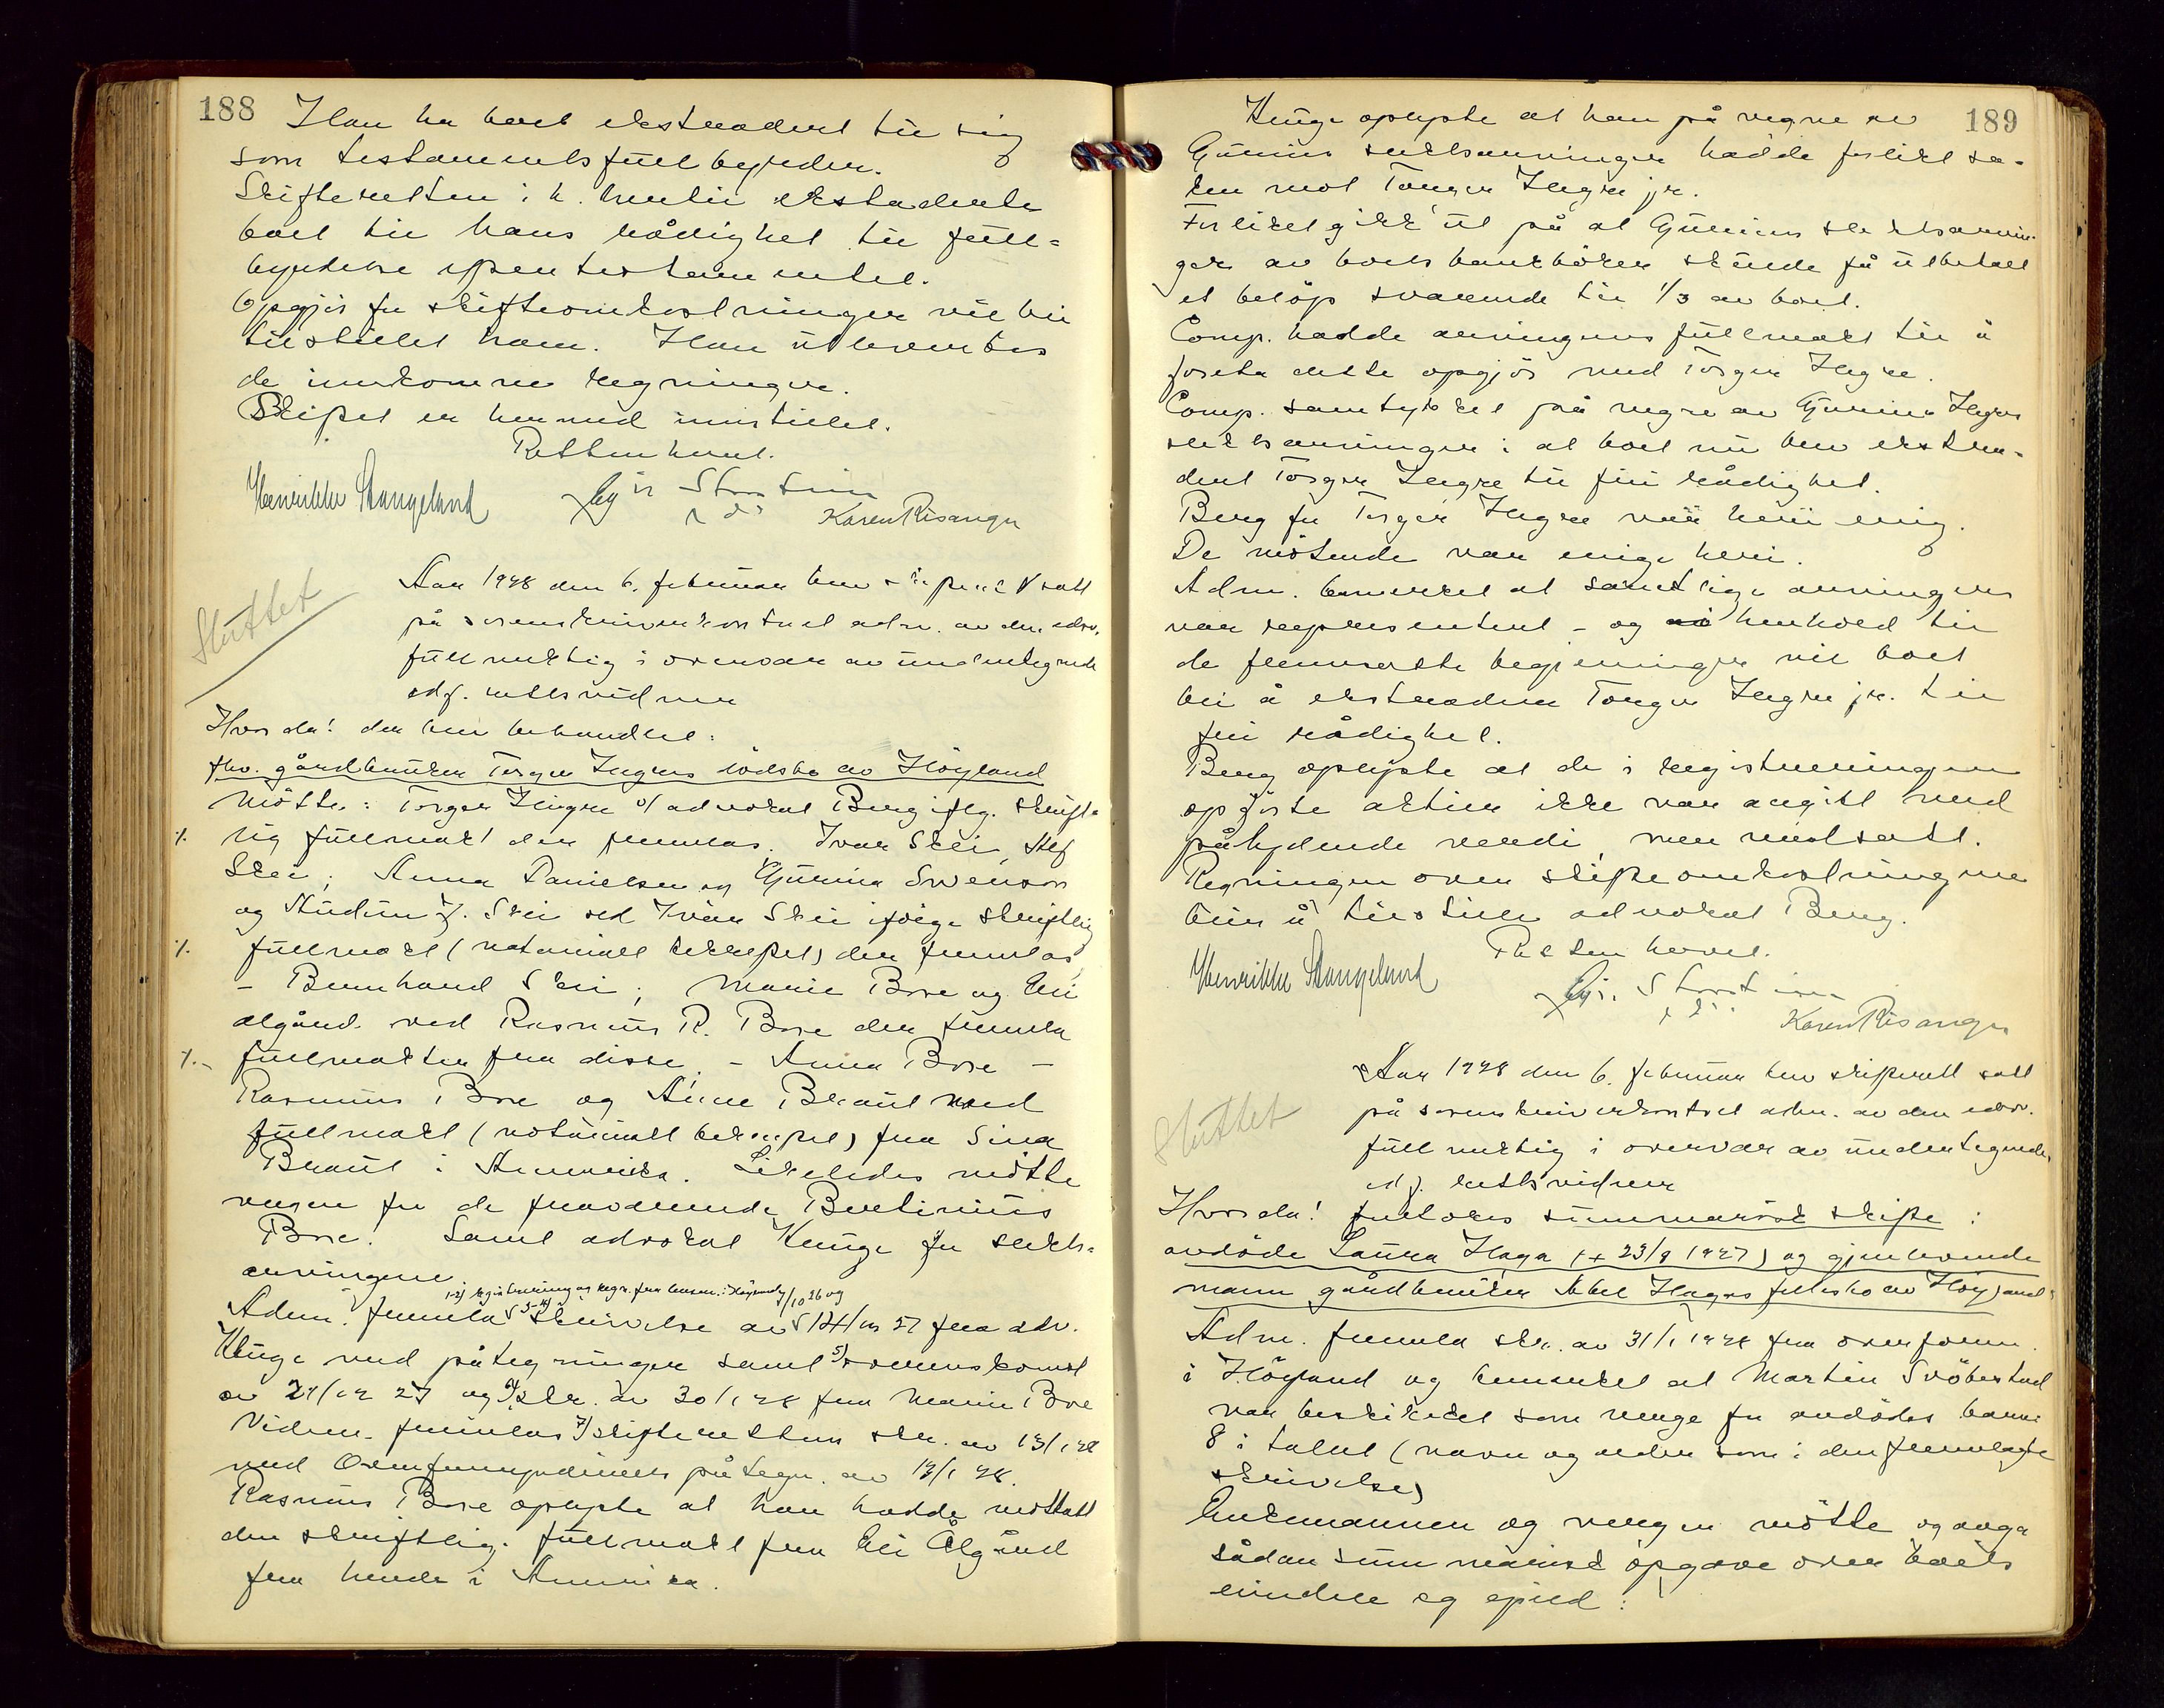 188
Han ba boet ekstradert til sig
som testamentsfullbyrder.
Skifteretten i h. hertil ekstraderte
boet til hans rådighet til full=
byrdelse af testamentet.
Opgjör for skifteomkostninger vil bli
tilstillet ham. Han utleverte
de innkomne regninger.
Skiftet er hermed innstillet.
Retten hevet.
Henrikke Stangeland
Karen Risanger
Sluttet
Aar 1928 den 6. februar blev skifterett satt
på sorenskriverkontoret adm. av den edsv.
fullmektig i overvær av undertegnede
edf. rettsvidner
Hvorda! der blev behandlet:
fhv. gårdbruker Torger Hegres dödsbo av Höyland
Mötte: Torger Hegre v/ advokat Berg iflg. skrift=
·/. lig fullmakt der fremlas. Ivar Skei, Alf
Skei, Anna Danielsen og Gurina Swenson
og Audun J. Skei ved Ivar Skei ifölge skriftlig
·/. fullmakt (notarialt bekreftet) der fremlas
- Bernhard Skei; Marie Bore og Eli
Algård ved Rasmus R. Bore der fremla
·/.- fullmakter fra disse. - Anna Bore -
Rasmus Bore og Anne Braut med
fullmakt (notarialt bekreftet) fra Sina
Braut i Amerika. Likeledes mötte
vergen for de fraværende Bertinius
Bore. Samt advokat Kluge for slekts=
arvingene.
1-2) registrering og regn. fra lensm. i Höyland 7/10 26 og
Adm. fremla 3-4) skrivelse av 14/12 27 fra adv.
Kluge med påtegninger samt 5) overenskomst
av 29/12 27 og 6) skr. av 30/1 28 fra Marie Bore
Videre fremlas 7) skifterettens skr. av 13/1 28
med Overformynderiets påtegn. av 17/1 28.
Rasmus Bore oplyste at han hadde mottatt
den skriftlig. fullmakt fra Eli Ålgård
fra hende i Amerika.
189
Kluge oplyste at han på vegne av
Gurines slektsarvinger hadde forlikt sa-
ken mot Torger Hegre jr.
Forliket gikk ut på at Gurines slektsarvin-
ger av boets bankböker skulde få utbetalt
et belöp svarende til 1/3 av boet.
Comp. hadde arvingenes fullmakt til å
foreta dette opgjör med Torger Hegre.
Comp. samtykket på vegne av Gurine Hegres
slektsarvinger i at boet nu blev ekstra-
dert Torger Hegre til fri rådighet.
Berg for Torger Hegre var heri enig.
De mötende var enige heri.
Adm. bemerket at samtlige arvinger
var representert - og i henhold til
de fremsatte begjeringer vil boet
bli å ekstradere Torger Hegre jr. til
fri rådighet.
Berg oplyste at de i registreringen
opförte aktier ikke var angitt med
pålydende verdi, men nedsatt.
Regningen over skifteomkostningene
blir å tilstille advokat Berg.
Retten hevet.
Henrikke Stangeland
Karen Risanger
Sluttet
Aar 1928 den 6. februar blev skifterett satt
på sorenskriverkontoret adm. av den edsv.
fullmektig i overvær av undertegnede
edf. rettsvidner
Hvorda! foretokes summarisk skifte:
avdöde Laura Haga (+ 23/9 1927) og gjenlevende
mann gårdbruker Abel Hagas fellesbo av Höyland
Adm. fremla skr. av 31/1 1928 fra overform.
i Höyland og bemerket at Martin Svöbestad
var beskikket som verge for avdödes barn
8 i tallet (navn og alder som i den fremlagte
skrivelse)
Enkemannen og vergen mötte og avga
sådan summarisk opgave over boets
eiendele og gjeld: